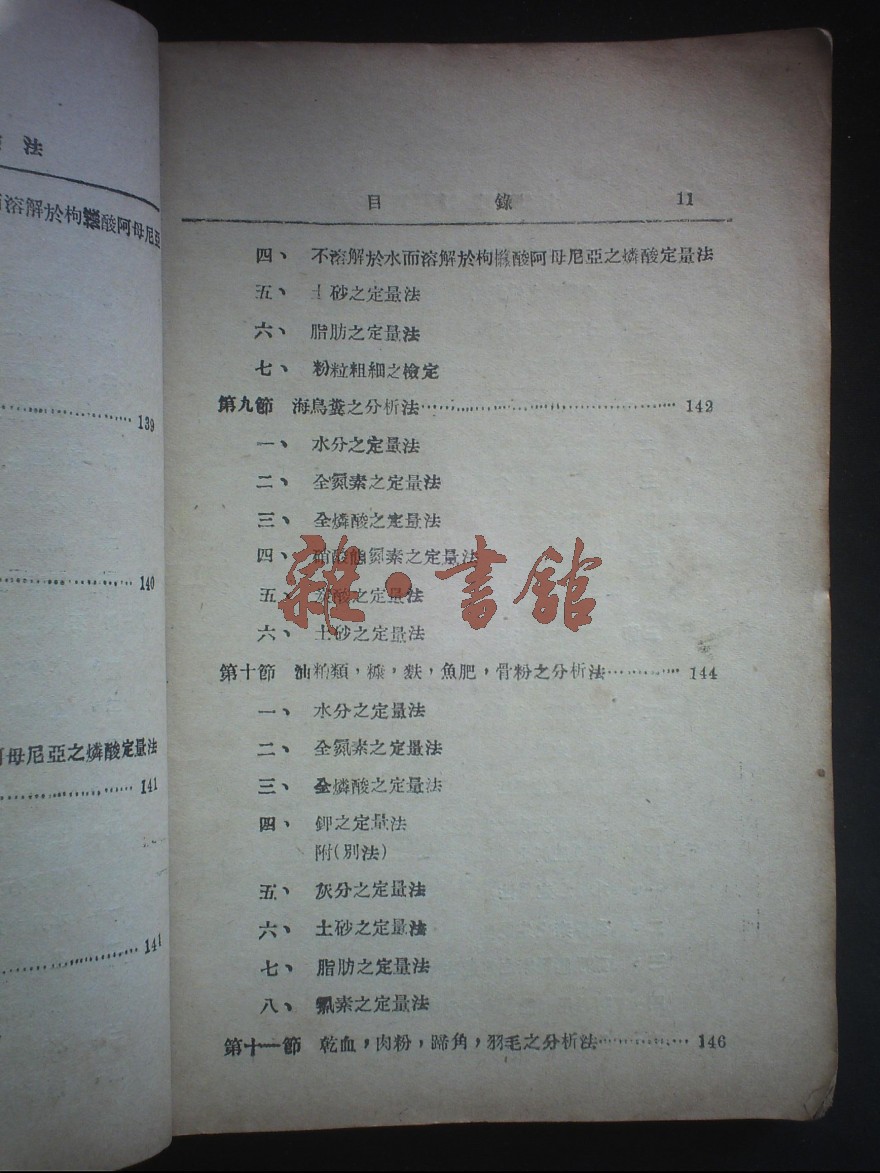 法
溶解於枸櫞酸阿母尼亞
139
140
母尼亞之燐酸定量法
141
141
目 錄 11
四、 不溶解於水而溶解於枸櫞酸阿母尼亞之燐酸定量法
五、 土砂之定量法
六、 脂肪之定量法
七、 粉粒粗細之檢定
第九節 海鳥糞之分析法 142
一、 水分之定量法
二、 全氮素之定量法
三、 全燐酸之定量法
四、 硝酸態氮素之定量法
五、 酸之定量法
六、 土砂之定量法
第十節 油粕類,糠,麩,魚肥,骨粉之分析法 144
一、 水分之定量法
二、 全氮素之定量法
三、 全燐酸之定量法
四、 鉀之定量法
附(別法)
五、 灰分之定量法
六、 土砂之定量法
七、 脂肪之定量法
八、 素之定量法
第十一節 乾血,肉粉,蹄角,羽毛之分析法 146
雜·書館